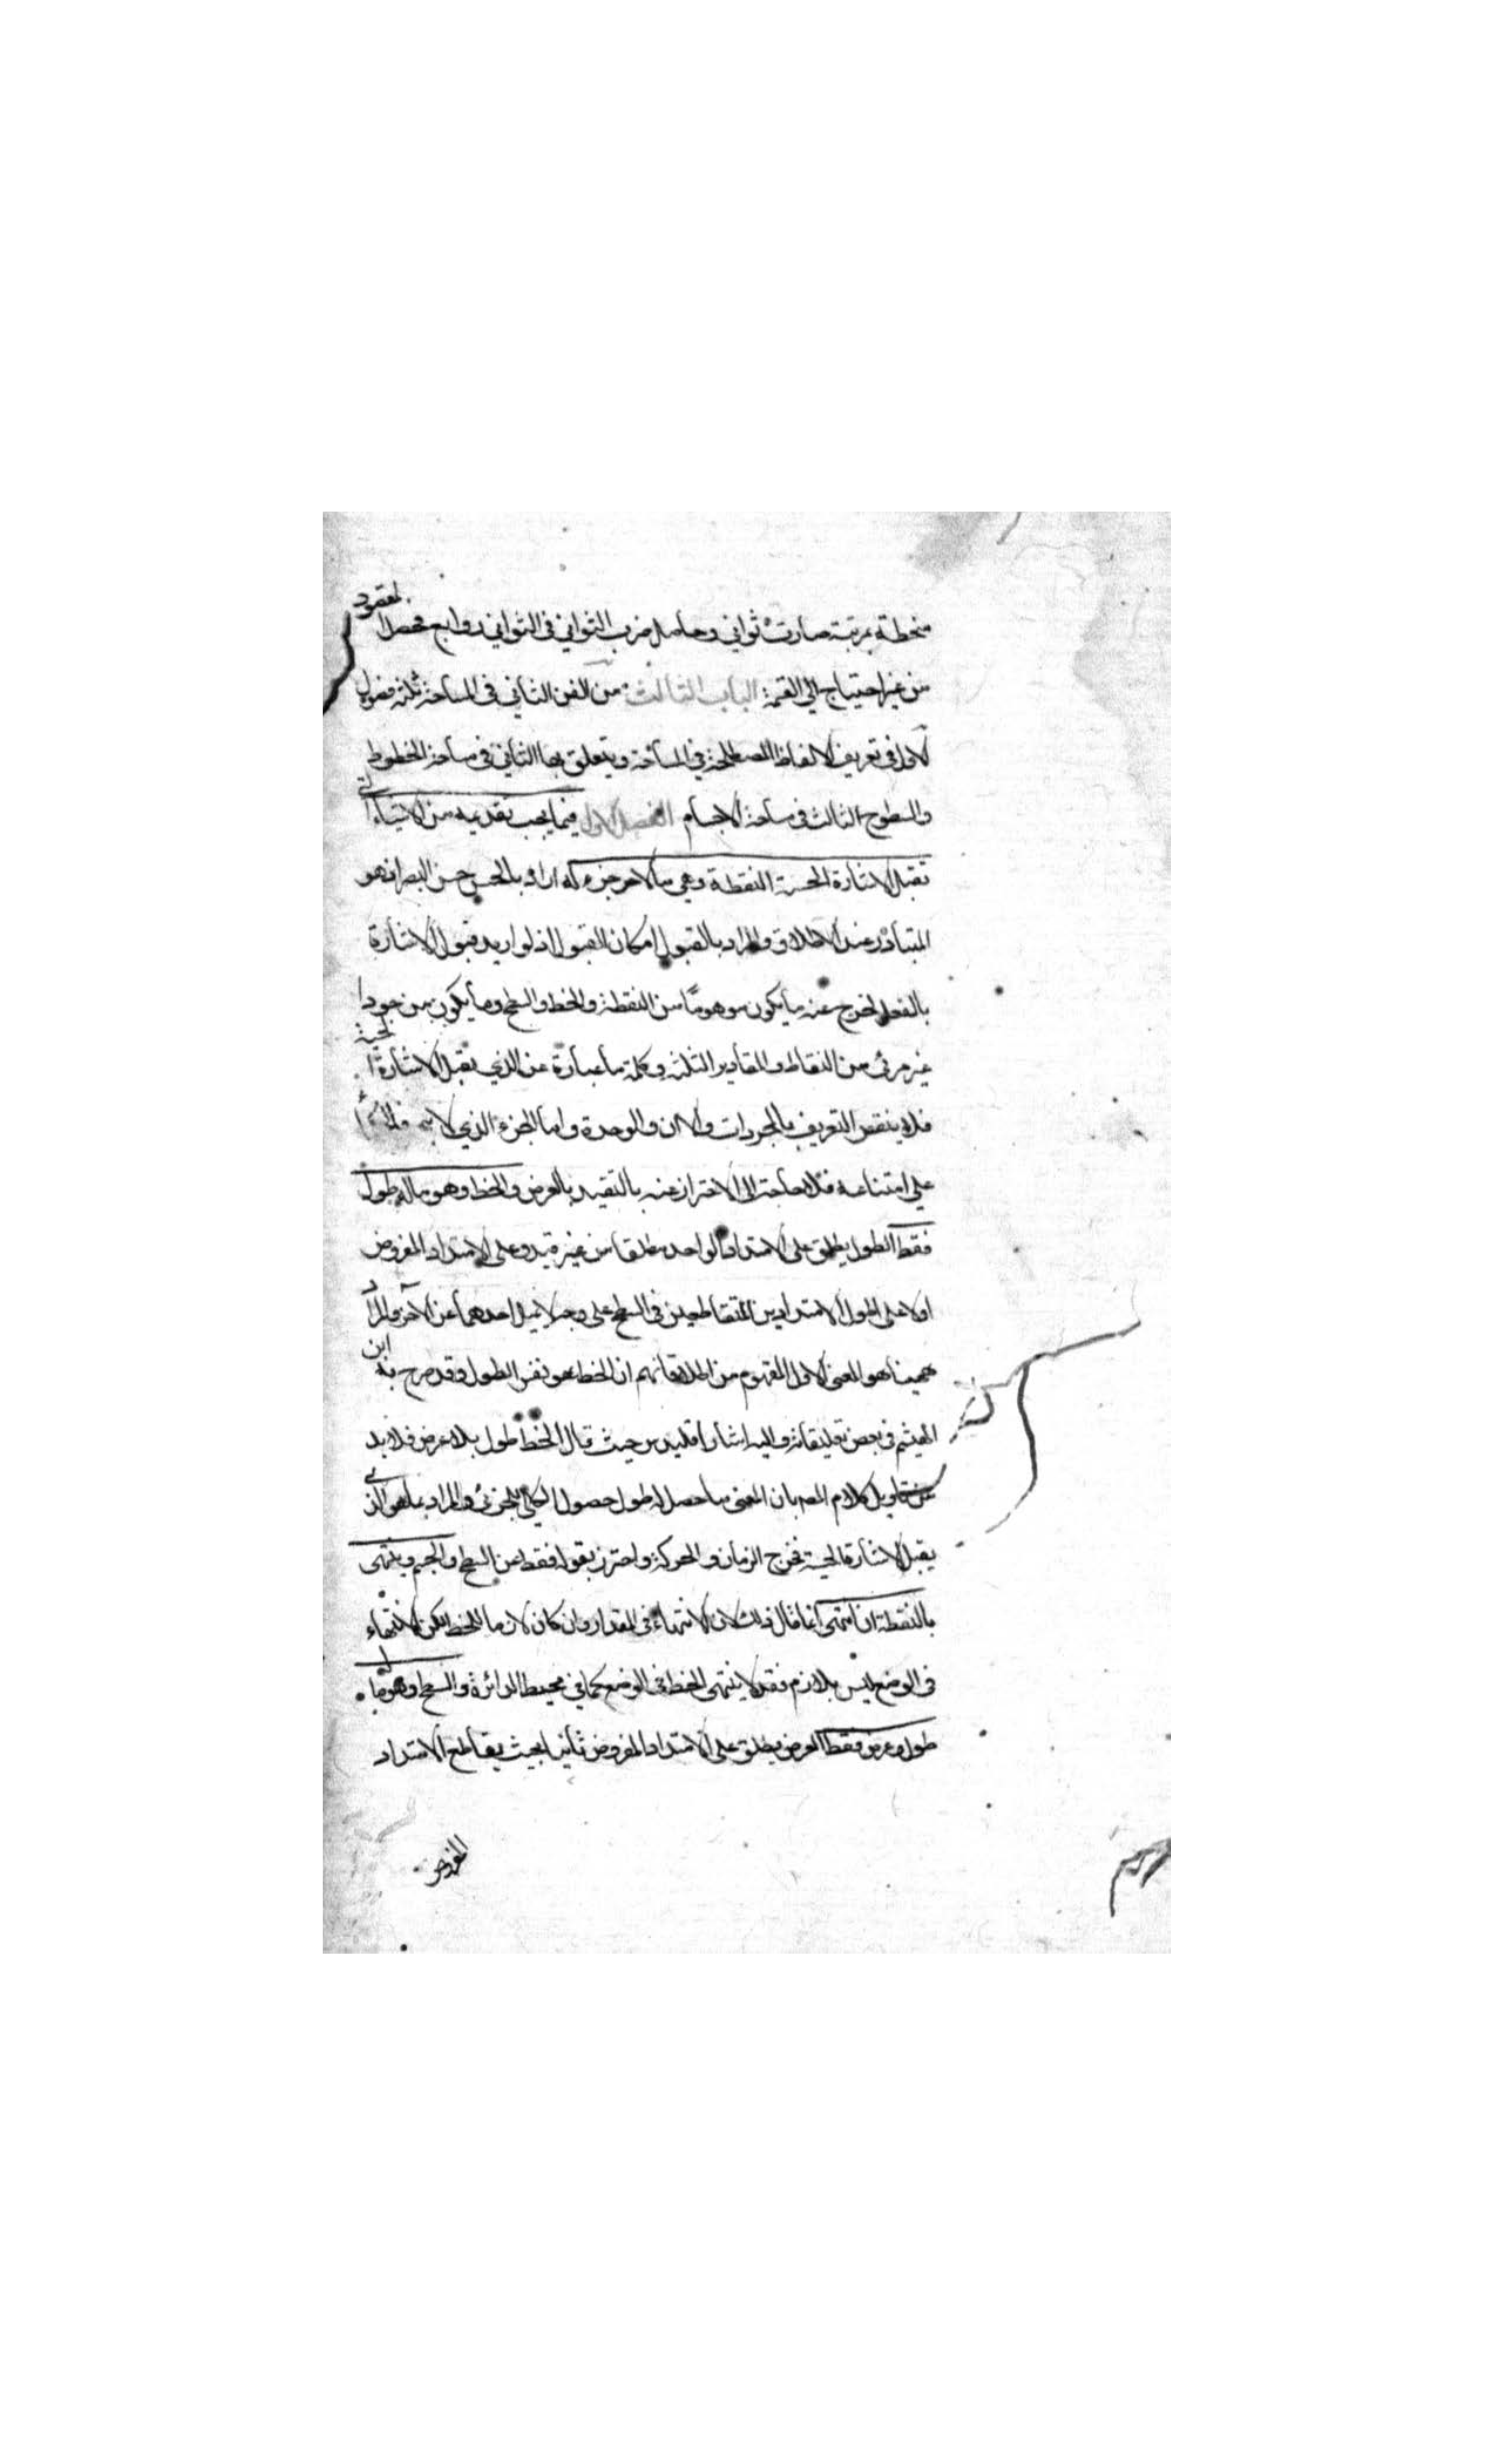 منحطة بمرتبة صارت ثواني وحاصل ضرب الثواني في الثواني روابع فحصل المقصود
من غير احتياج الي القسمة الباب الثالث من الفن الثاني في المساحة ثلثة فصول
الاول في تعريف الالفاظ المصطلحة في المساحة ويتعلق بها الثاني في مساحة الخطوط
والسطوح الثالث في مساحة الاجسام الفصل الاول فيما يجب تقديمه من الاشياء التي
تقبل الاشارة الحسية النقطة وهي ما لا جزء له اراد بالحس حس البصر اذ هو
المتبادر عند الاطلاق والمراد بالقبول امكان القبول اذ لو اريد قبول الاشارة
بالفعل لخرج عنه ما يكون موهوما من النقطة والخط والسطح وما يكون موجودا
غير مرئي من النقاط والمقادير الثلثة وكلمة ما عبارة عن الذي يقبل الاشارة الحسية
فلا ينتقض التعريف بالمجردات والان والوحدة واما الجزء الذي لا
علي امتناعه فلا حاجة الى الاحتراز عنه بالتقييد بالعرض والخط وهو ماله طول
فقط الطول يطلق على الامتداد الواحد مطلقا من غير قيد وعلى الامتداد المفروض
اولا على اطول الامتدادين المتقاطعين في السطح على وجه لا يميل احدهما عن الآخر والمراد
ههنا هو المعنى الاول المفهوم من اطلاقاتهم ان الخط هو نفس الطول وقد صرح به ابن
الهيثم في بعض تعليقاته واليه اشار اقليدس حيث قال الخط طول بلا عرض فلا بد
من تاويل كلام المصـ بان المعنى ما حصل له طول حصول الكلي للجزئي والمراد بما هو الذي
يقبل الاشارة الحسية فخرج الزمان والحركة واحترز بقوله فقط عن السطح والجسم وينتهى
بالنقطة ان انتهى انما قال ذلك لان الانتهاء في المقدار وان كان لازما للخط لكن الانتهاء
في الوضع ليس بلازم فقد لا ينتهى الخط في الوضع كما في محيط الدائرة والسطح وهو ما له
طول وعرض فقط العرض يطلق على الامتداد المفروض ثانيا بحيث يقاطع الامتداد
المفروض